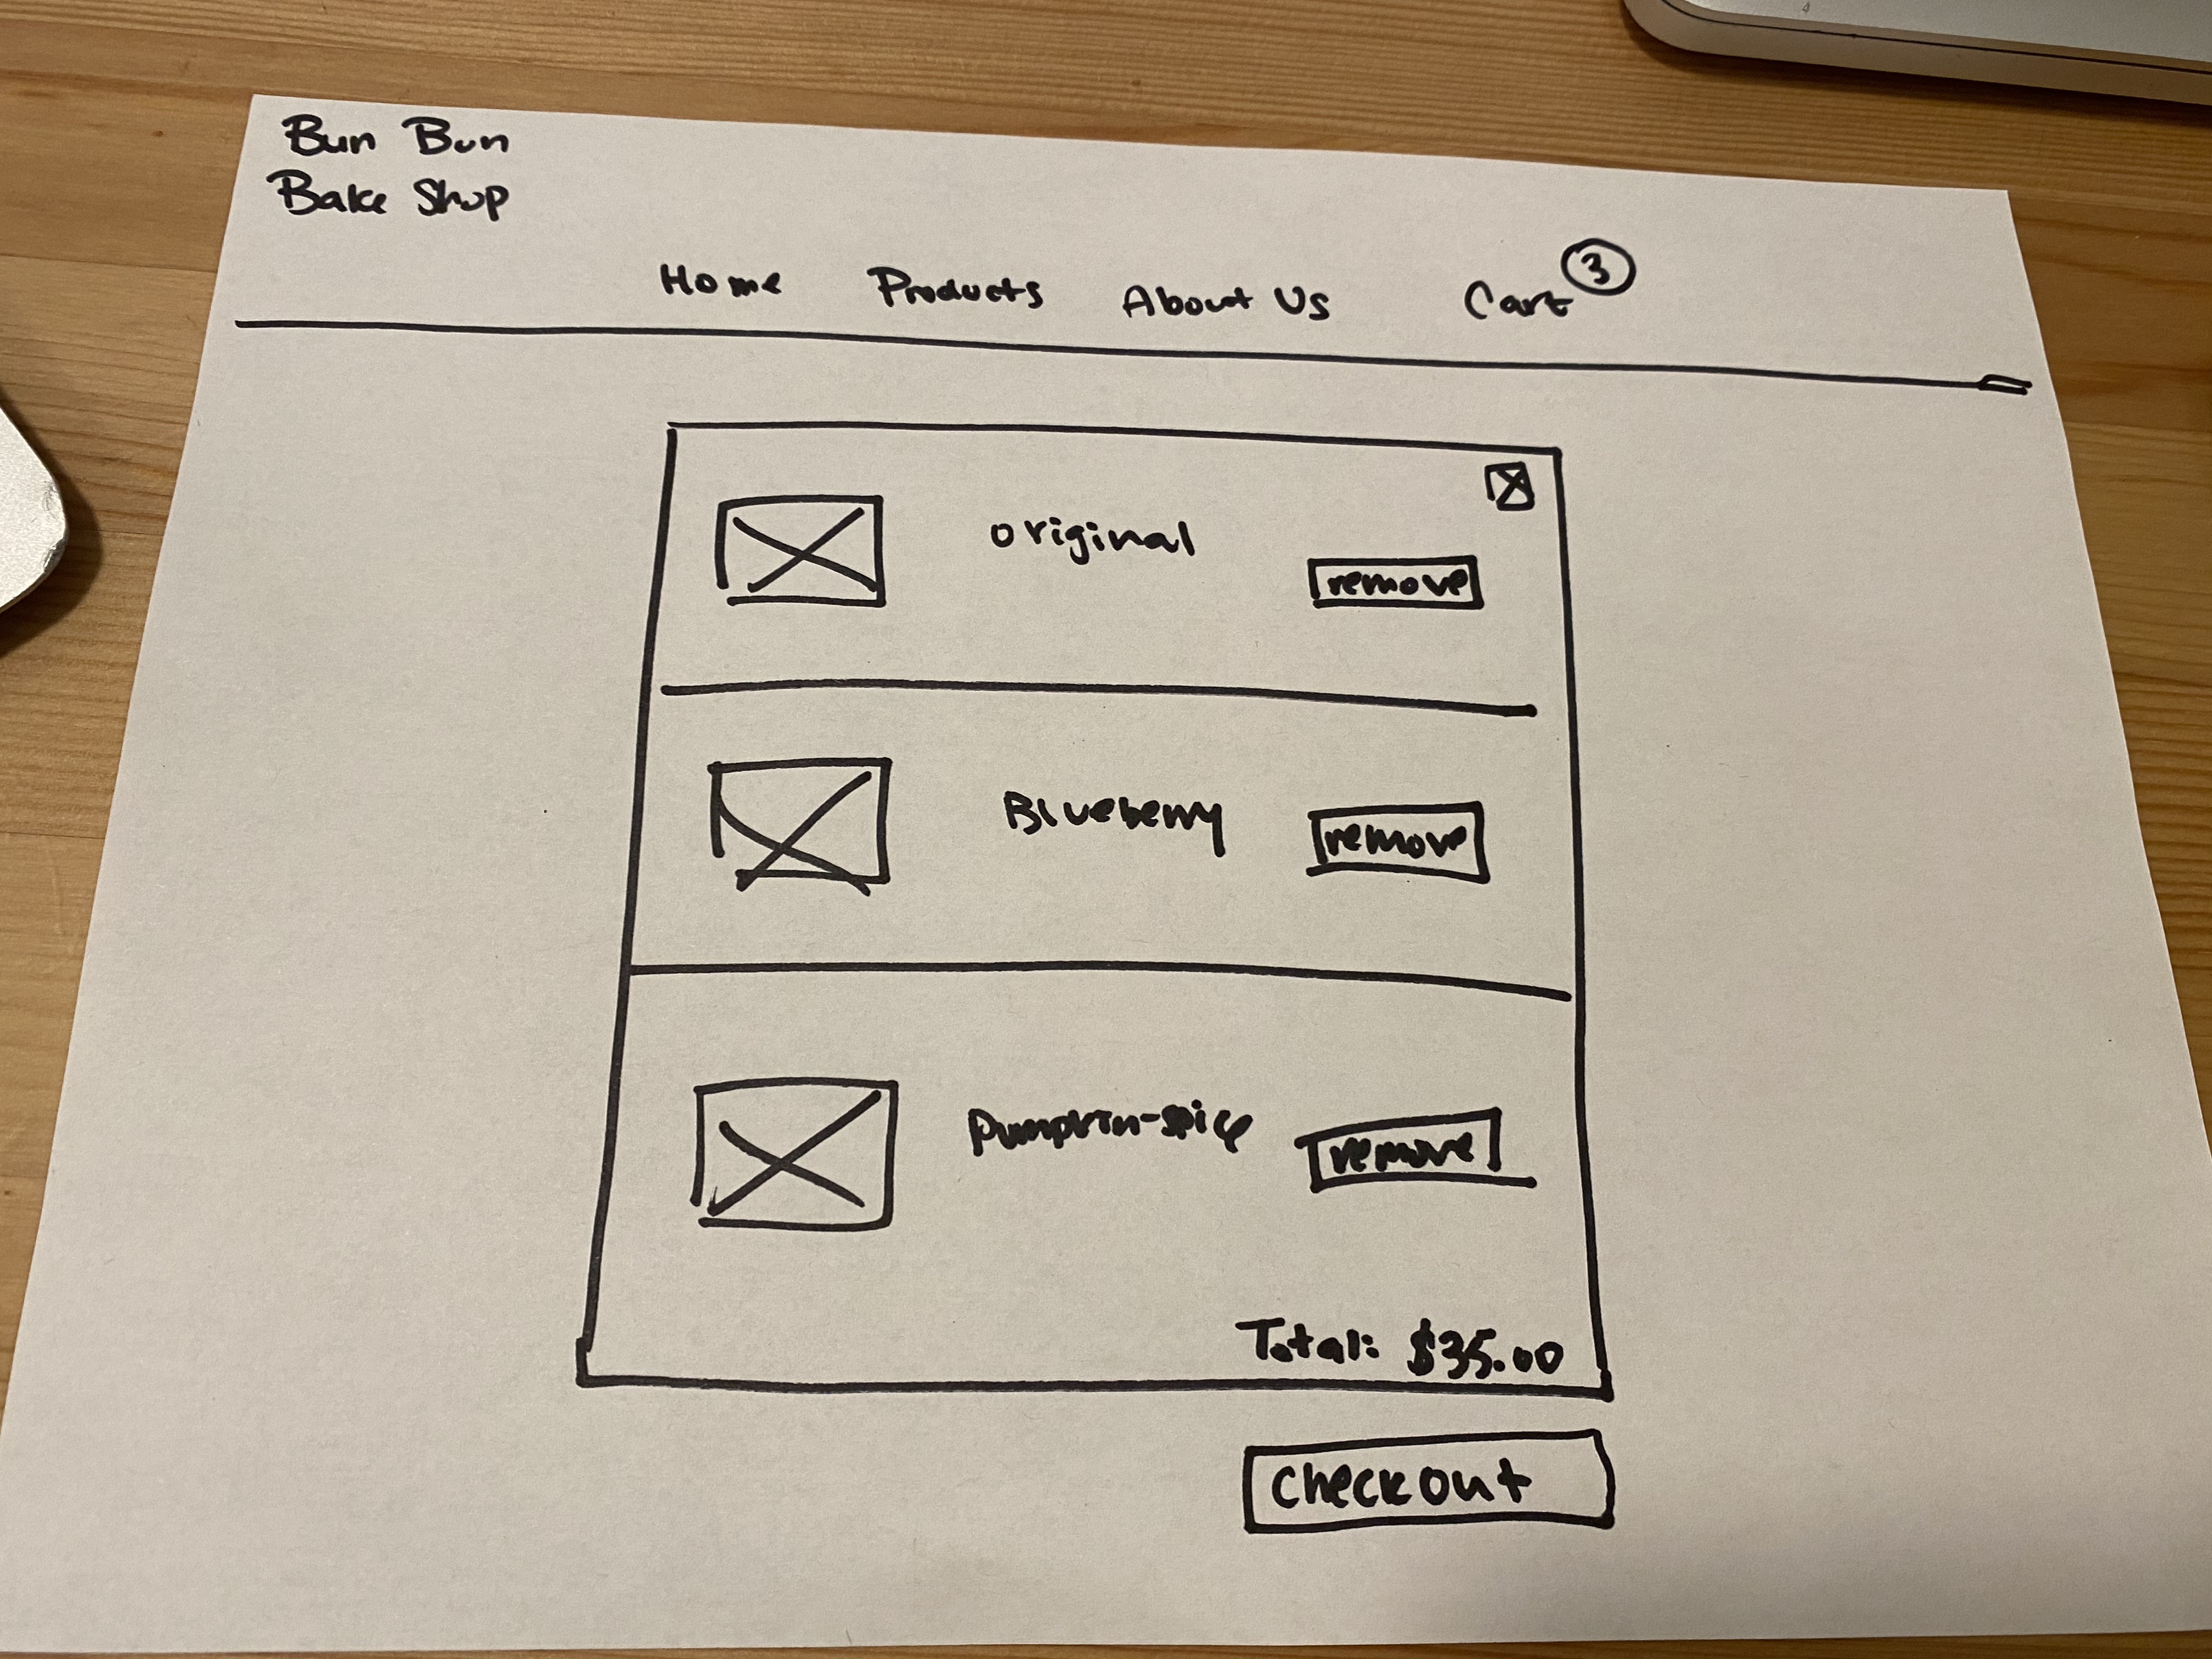 Bun Bun
Bake Shop
Home Products About Us Cart 3
original remove
Blueberry remove
Pumpkin-spice remove
Total: $35.00
Checkout